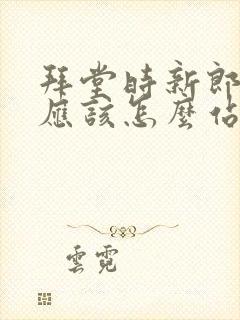 拜堂時新郎
應該怎麼佔
雲霓